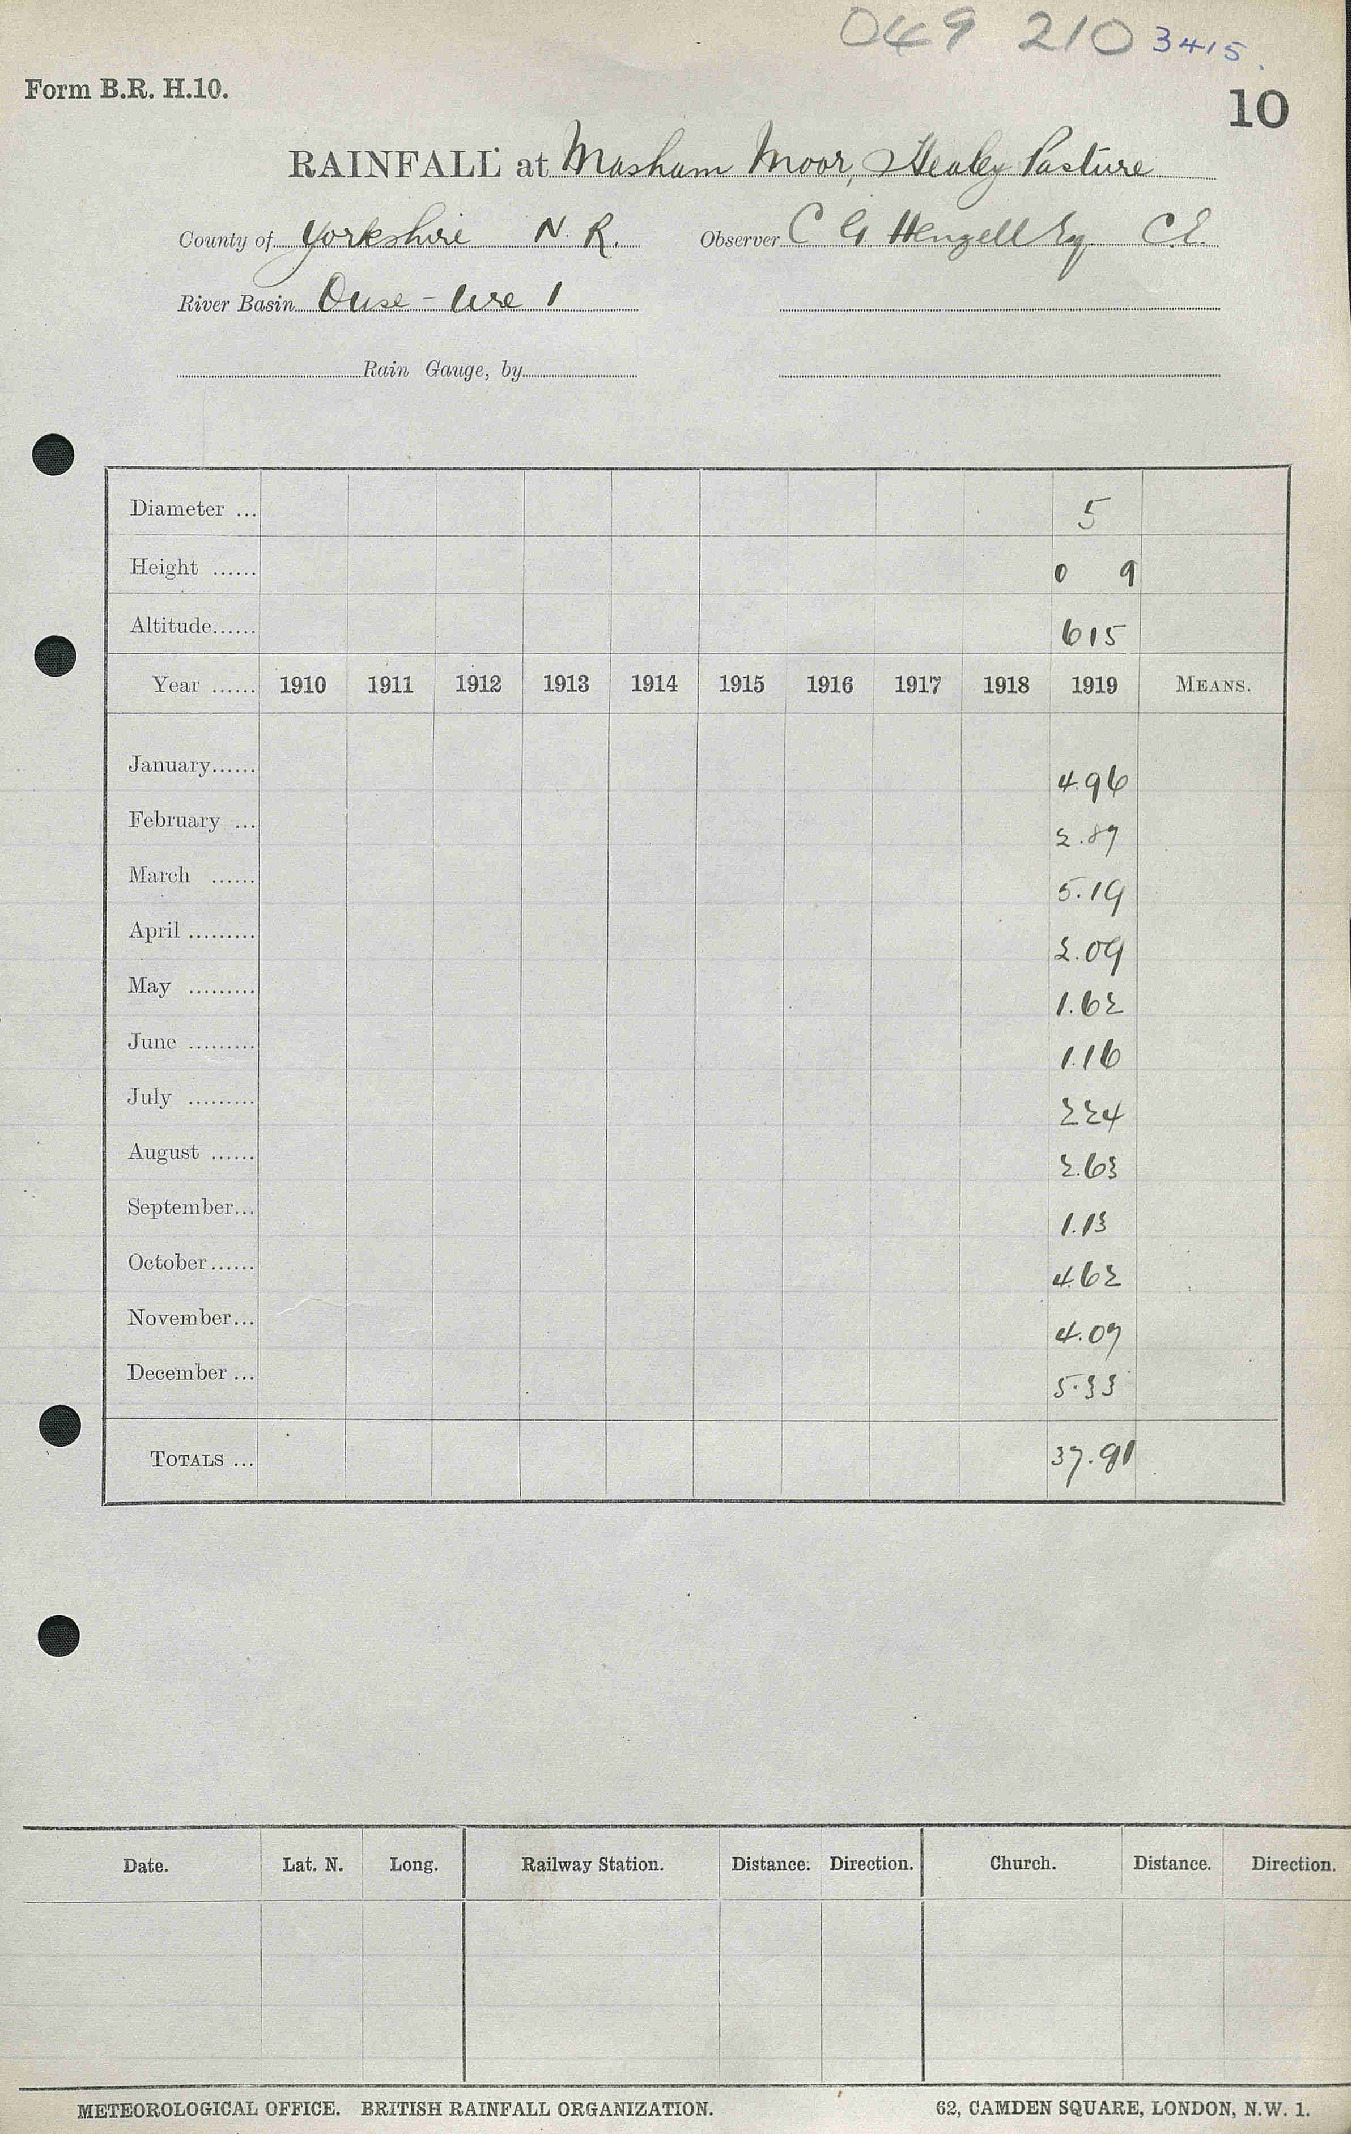 049 210 3415.
Form B.R. H.10.
10
RAINFALL at Masham Moor, Healey Pasture
County of Yorkshire N. R. Observer C G Henzell Esq. C.E.
River Basin Ouse - Ure 1
Rain Gauge, by
Diameter ... 5
Height ...... 0 9
Altitude...... 615
Year ...... 1910 1911 1912 1913 1914 1915 1916 1917 1918 1919 MEANS.
January...... 4.96
February ... 2.87
March ...... 5.19
April ......... 2.09
May ......... 1.62
June ......... 1.16
July ......... 2.24
August ...... 2.63
September... 1.13
October...... 4.62
November... 4.07
December ... 5.33
TOTALS ... 37.91
Date. Lat. N. Long. Railway Station. Distance. Direction. Church. Distance. Direction.
METEOROLOGICAL OFFICE. BRITISH RAINFALL ORGANIZATION. 62, CAMDEN SQUARE, LONDON, N.W. 1.